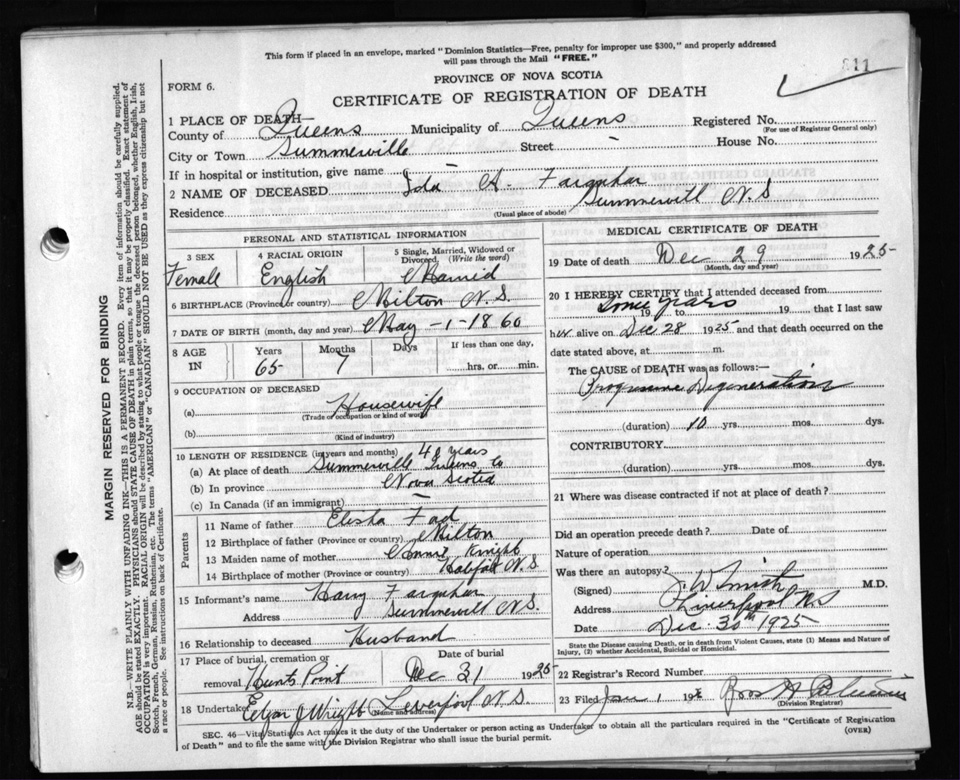 This form if placed in an envelope, marked "Dominion Statistics—Free, penalty for improper use $300," and properly addressed
will pass through the Mail "FREE."
PROVINCE OF NOVA SCOTIA
FORM 6.
CERTIFICATE OF REGISTRATION OF DEATH
811
1 PLACE OF DEATH—
County of Queens Municipality of Queens Registered No.
(For use of Registrar General only)
City or Town Summerville Street - House No.
If in hospital or institution, give name -
2 NAME OF DECEASED Ida A. Farquhar
Residence Summervill N.S
(Usual place of abode)
PERSONAL AND STATISTICAL INFORMATION
3 SEX
Female
4 RACIAL ORIGIN
English
5 Single, Married, Widowed or
Divorced (Write the word)
Married
6 BIRTHPLACE (Province or country) Milton N.S.
7 DATE OF BIRTH (month, day and year) May -1-1860
8 AGE
IN
Years
65-
Months
7
Days
If less than one day,
hrs. or min.
9 OCCUPATION OF DECEASED
(a) Housewife
(Trade or occupation or kind of work)
(b)
(Kind of industry)
10 LENGTH OF RESIDENCE (in years and months) years
(a) At place of death Summervill Queens Co
(b) In province Nova Scotia
(c) In Canada (if an immigrant) -
Parents
11 Name of father Elisha
12 Birthplace of father (Province or country) Milton
13 Maiden name of mother Knight
14 Birthplace of mother (Province or country) Halifax N.S
15 Informant's name Harry Farquhar
Address Summervill N.S.
16 Relationship to deceased Husband
17 Place of burial, cremation or
removal Hunts Point
Date of burial
Dec 31 1925
18 Undertaker J Wright Liverpool N.S.
(Name and address)
MEDICAL CERTIFICATE OF DEATH
19 Date of death Dec 29 1925
(Month, day and year)
20 I HEREBY CERTIFY that I attended deceased from
Some years
19 to 19 that I last saw
her alive on Dec 28 1925 and that death occurred on the
date stated above, at m.
The CAUSE of DEATH was as follows:
Degeneration
(duration) 10 yrs. mos. dys.
CONTRIBUTORY
(duration) yrs. mos. dys.
21 Where was disease contracted if not at place of death?
Did an operation precede death? Date of
Nature of operation
Was there an autopsy?
(Signed) J. W Smith M.D.
Address Liverpool N.S
Date Dec. 30th 1925
State the Disease causing Death, or in death from Violent Causes, state (1) Means and Nature of
Injury, (2) whether Accidental, Suicidal or Homicidal.
22 Registrar's Record Number
23 Filed Jan 1 192
(Division Registrar)
SEC. 46—Vital Statistics Act makes it the duty of the Undertaker or person acting as Undertaker to obtain all the particulars required in the "Certificate of Registration
of Death" and to file the same with the Division Registrar who shall issue the burial permit.
(OVER)
MARGIN RESERVED FOR BINDING
N.B.—WRITE PLAINLY WITH UNFADING INK—THIS IS A PERMANENT RECORD. Every item of information should be carefully supplied.
AGE should be stated EXACTLY. PHYSICIANS should STATE CAUSE OF DEATH in plain terms, so that it may be properly classified. Exact statement of
OCCUPATION is very important. RACIAL ORIGIN will be described by stating to what people or tongue the deceased person belonged, whether English, Irish,
Scotch, French, German, Russian, Ruthenian, etc. The terms "AMERICAN" or "CANADIAN" SHOULD NOT BE USED as they express citizenship but not
a race or people. See instructions on back of Certificate.